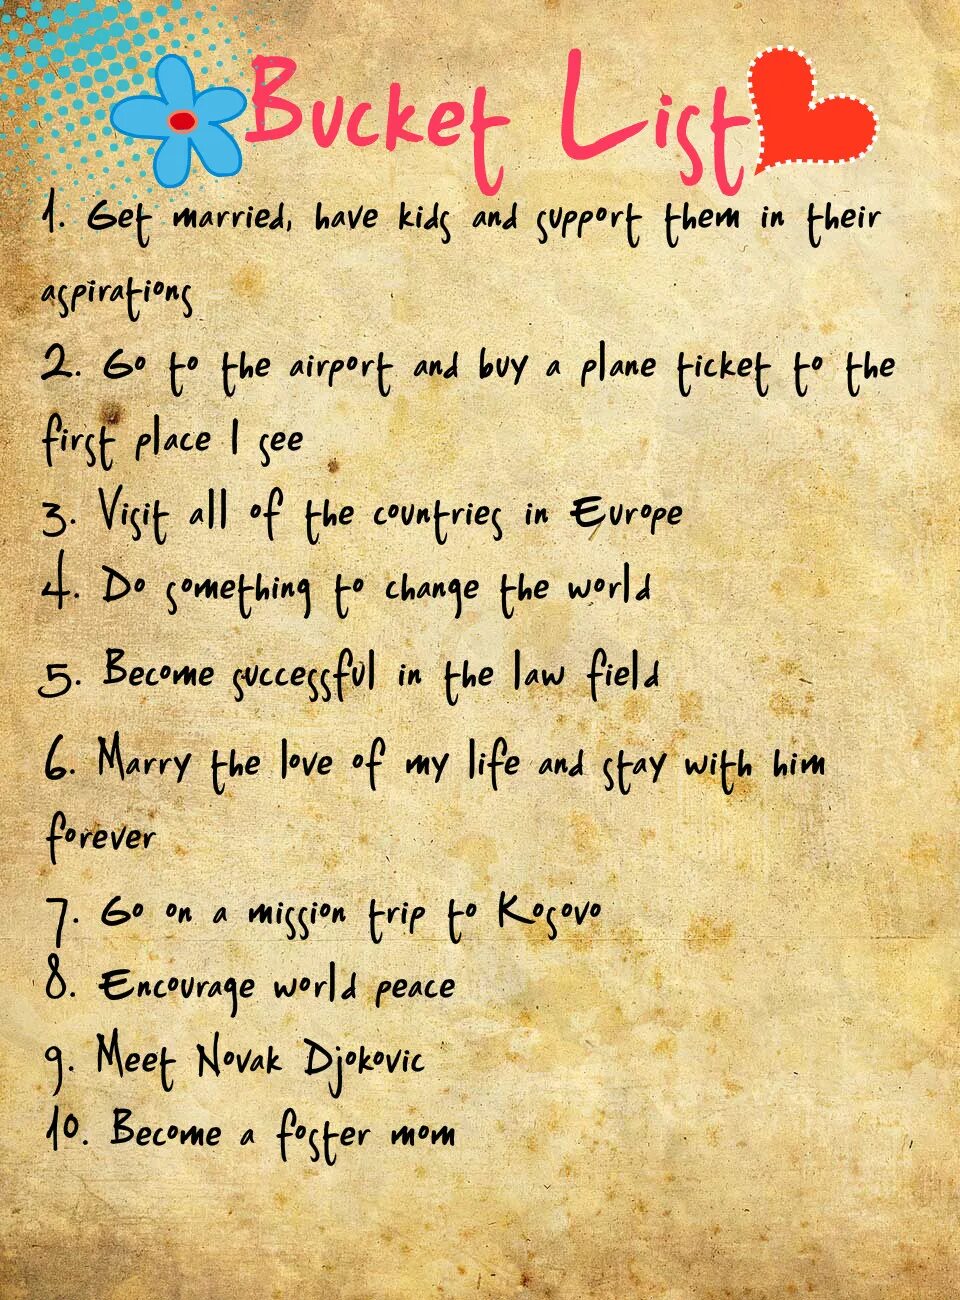 Bucket List
1. Get married, have kids and support them in their
aspirations
2. Go to the airport and buy a plane ticket to the
first place I see
3. Visit all of the countries in Europe
4. Do something to change the world
5. Become successful in the law field
6. Marry the love of my life and stay with him
forever
7. Go on a mission trip to Kosovo
8. Encourage world peace
9. Meet Novak Djokovic
10. Become a foster mom